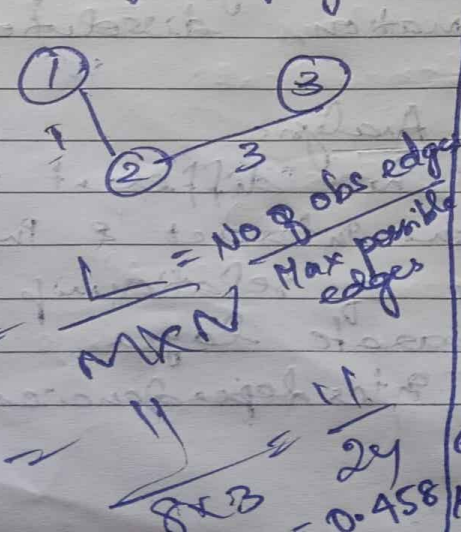 1
3
1
2
3
L / M×N = No of obs edge / Max possible edges
= 11 / 8×3 = 11 / 24
= 0.458